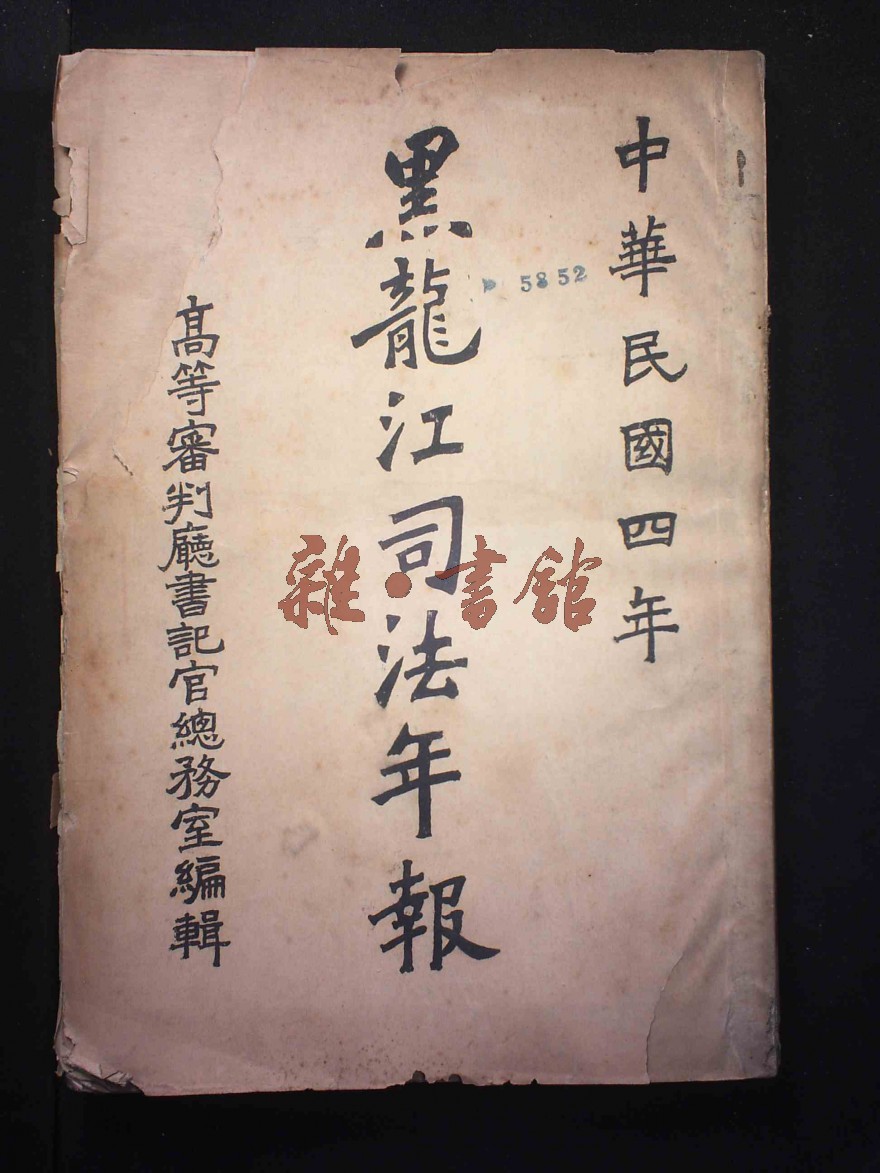 中華民國四年
黑龍江司法年報
高等審判廳書記官總務室編輯
5852
雜·書館